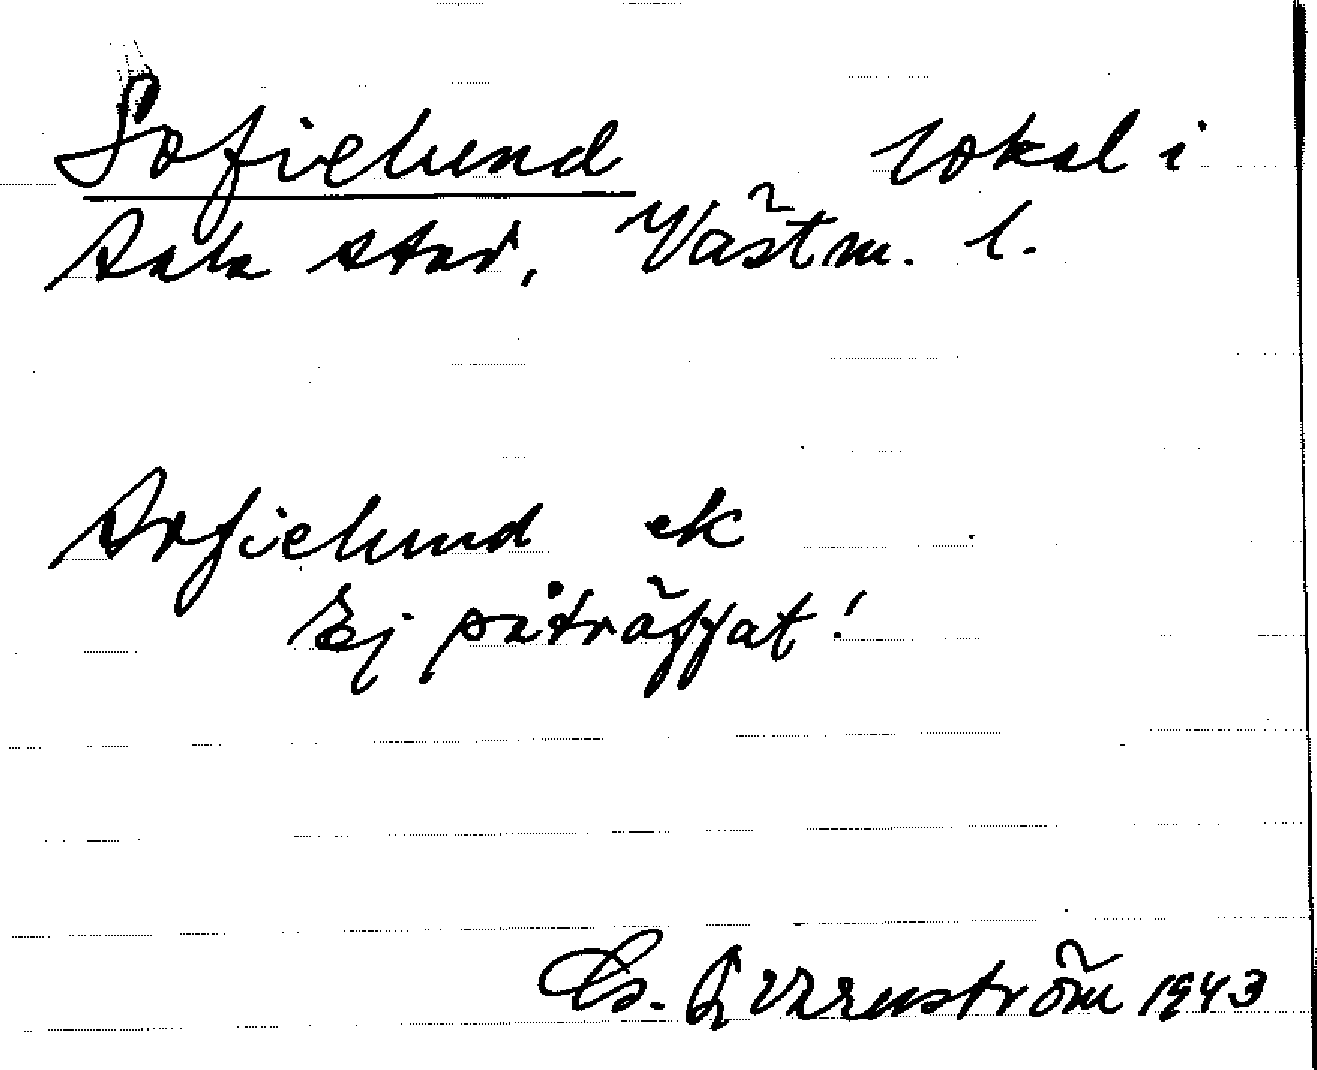 Sofielund lokal i
Sala stad, Västm. l.
Sofielund ek
Ej påträffat!
1943